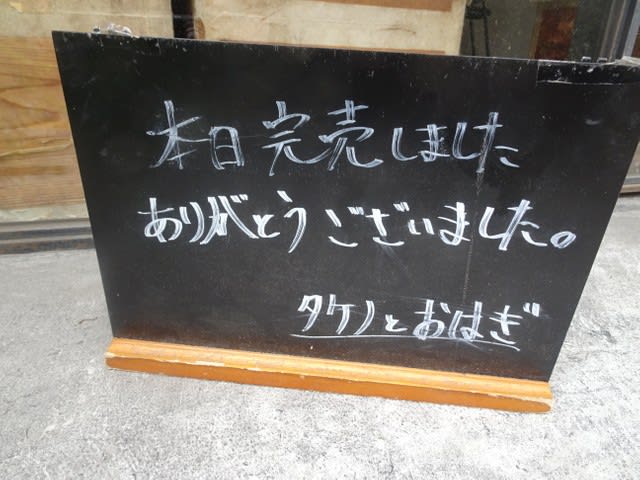 本日完売しました
ありがとうございました。
タケノとおはぎ